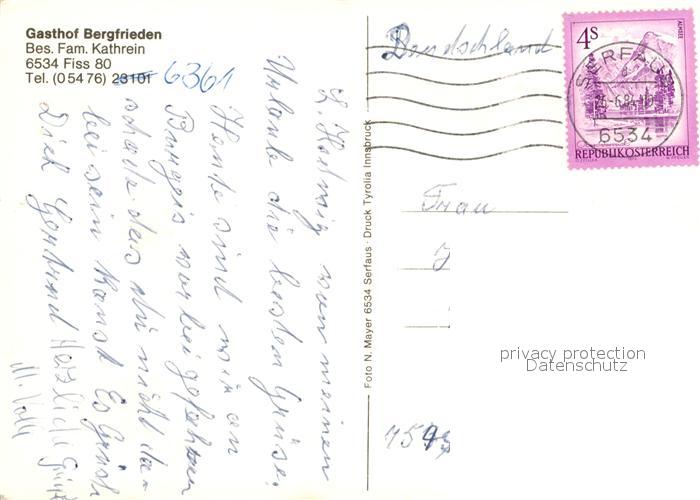 Gasthof Bergfrieden
Bes. Fam. Kathrein
6534 Fiss 80
Tel. (05476) 23101 6361
L. Hedwig von meinen
Urlaub die besten Grüße.
Heute sind wir an
vorbei gefahren
schade das du nicht da-
bei sein kanst Es Grüßt
Dich Gertrud Herzliche Grüße
M.
Foto N. Mayer 6534 Serfaus · Druck Tyrolia Innsbruck
Deudschland
4S
ALMSEE
SERFAUS
6534
REPUBLIK ÖSTERREICH
Frau
J
privacy protection
Datenschutz